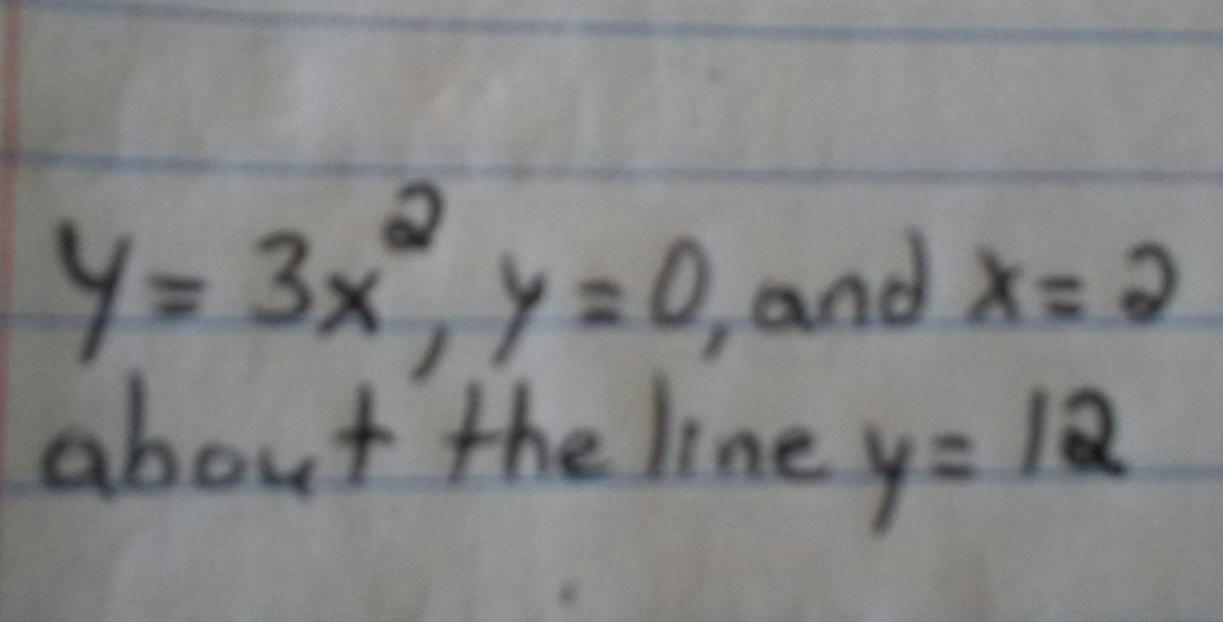 y = 3x², y = 0, and x = 2
about the line y = 12